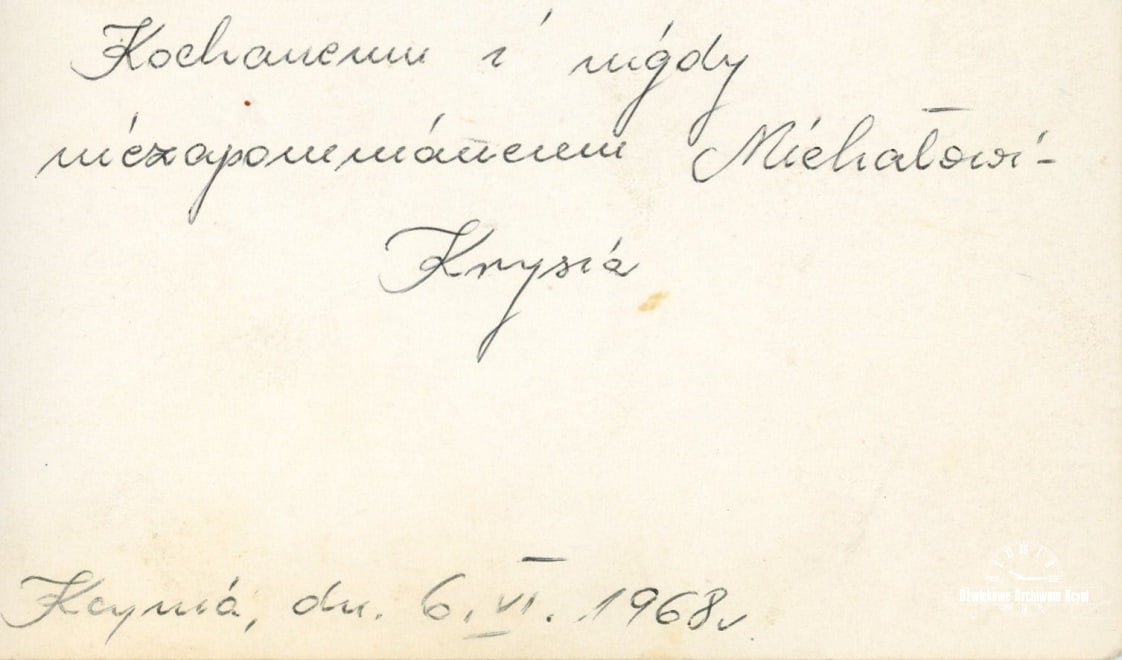 Kochanemu i nigdy
niezapomnianemu Michałowi-
Krysia
Kcynia, dn. 6.VI.1968r.
Dźwiękowe Archiwum Kcyni